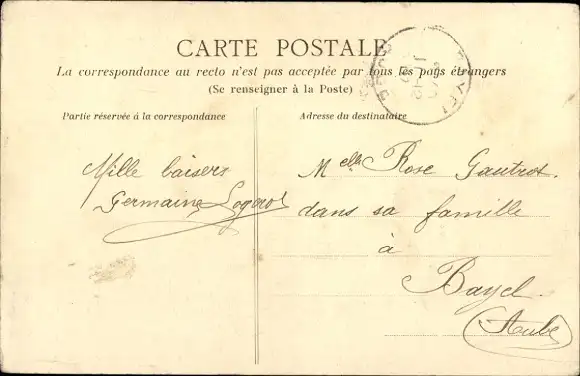 CARTE POSTALE
La correspondance au recto n'est pas acceptée par tous les pays étrangers
(Se renseigner à la Poste)
Partie réservée á la correspondance
Adresse du destinataire
Mille baisers
Germaine
Melle Rose Gautrot.
dans sa famille
à
Bayel.
(Aube)